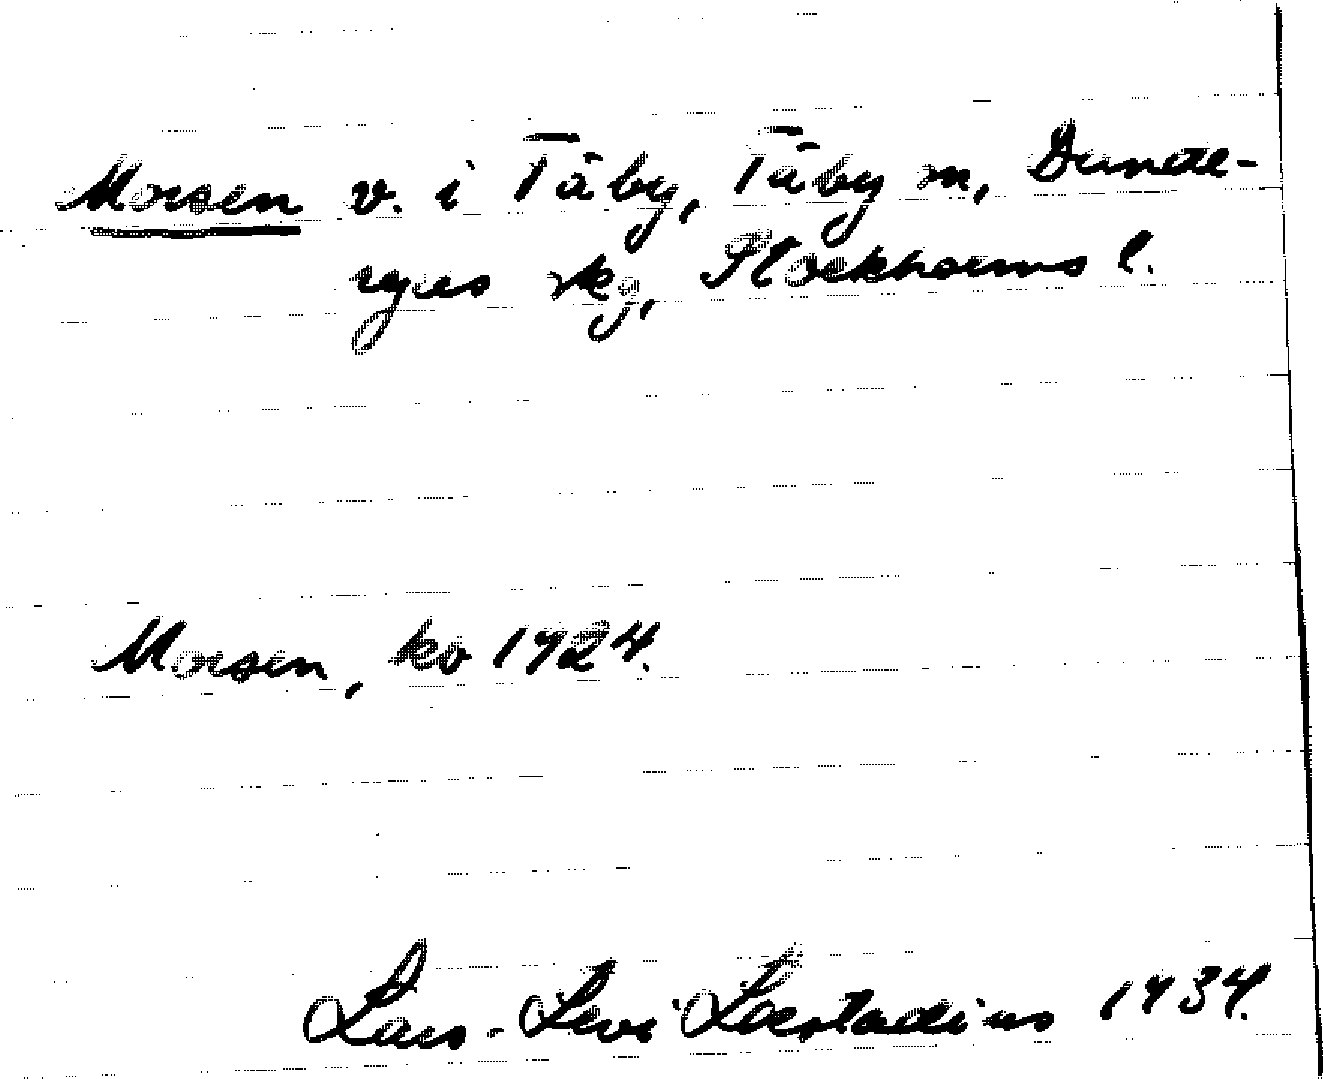 Morsen v. i Täby, Täby sn, Dande-
ryds skg, Stockholms l.
Morsen, ko 1924.
Lars-Levi Læstadius 1934.